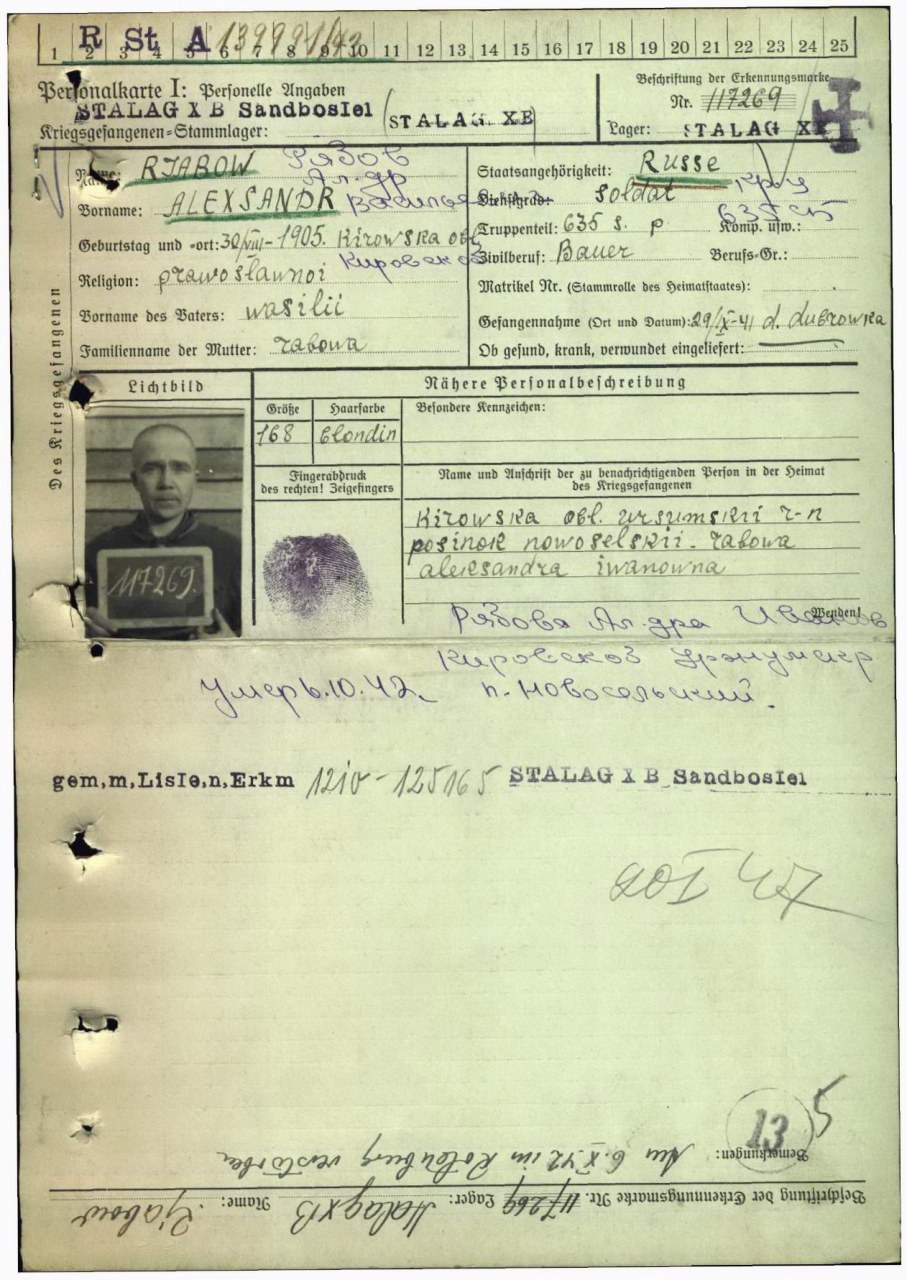 R St A 139991/42
1 2 3 4 5 6 7 8 9 10 11 12 13 14 15 16 17 18 19 20 21 22 23 24 25
Personalkarte I: Personelle Angaben
STALAG X B Sandbostel
Kriegsgefangenen-Stammlager: STALAG XB
Beschriftung der Erkennungsmarke
Nr. 117269
Lager: STALAG XB
Des Kriegsgefangenen
Name: RJABOW Рябов
Ал-др
Vorname: ALEXSANDR
Geburtstag und -ort: 30/VIII-1905. Kirowska obl
Religion: prawoslawnoi
Vorname des Vaters: wasilii
Familienname der Mutter: rabowa
Staatsangehörigkeit: Russe
Dienstgrad: Soldat
Truppenteil: 635 s. p Komp. usw.: 635 сп
Zivilberuf: Bauer Berufs-Gr.:
Matrikel Nr. (Stammrolle des Heimatstaates):
Gefangennahme (Ort und Datum): 29/IX-41 d. dubrowka
Ob gesund, krank, verwundet eingeliefert:
Lichtbild
Nähere Personalbeschreibung
Größe Haarfarbe Besondere Kennzeichen:
168 blondin
Fingerabdruck
des rechten! Zeigefingers
Name und Anschrift der zu benachrichtigenden Person in der Heimat
des Kriegsgefangenen
Kirowska obl. ursumskii r-n
posinok nowoselskii. rabowa
aleksandra iwanowna
117269.
Wenden!
Рябова Ал-дра
Умер 6.10.42 п. Новосельский.
gem,m,Liste,n,Erkm 1210-125165 STALAG X B Sandbostel
13 5
Bemerkungen: Am 6.X.42 in Rotenburg verstorben
Beschriftung der Erkennungsmarke Nr. 117269 Lager: Stalag XB Name: Rjabow